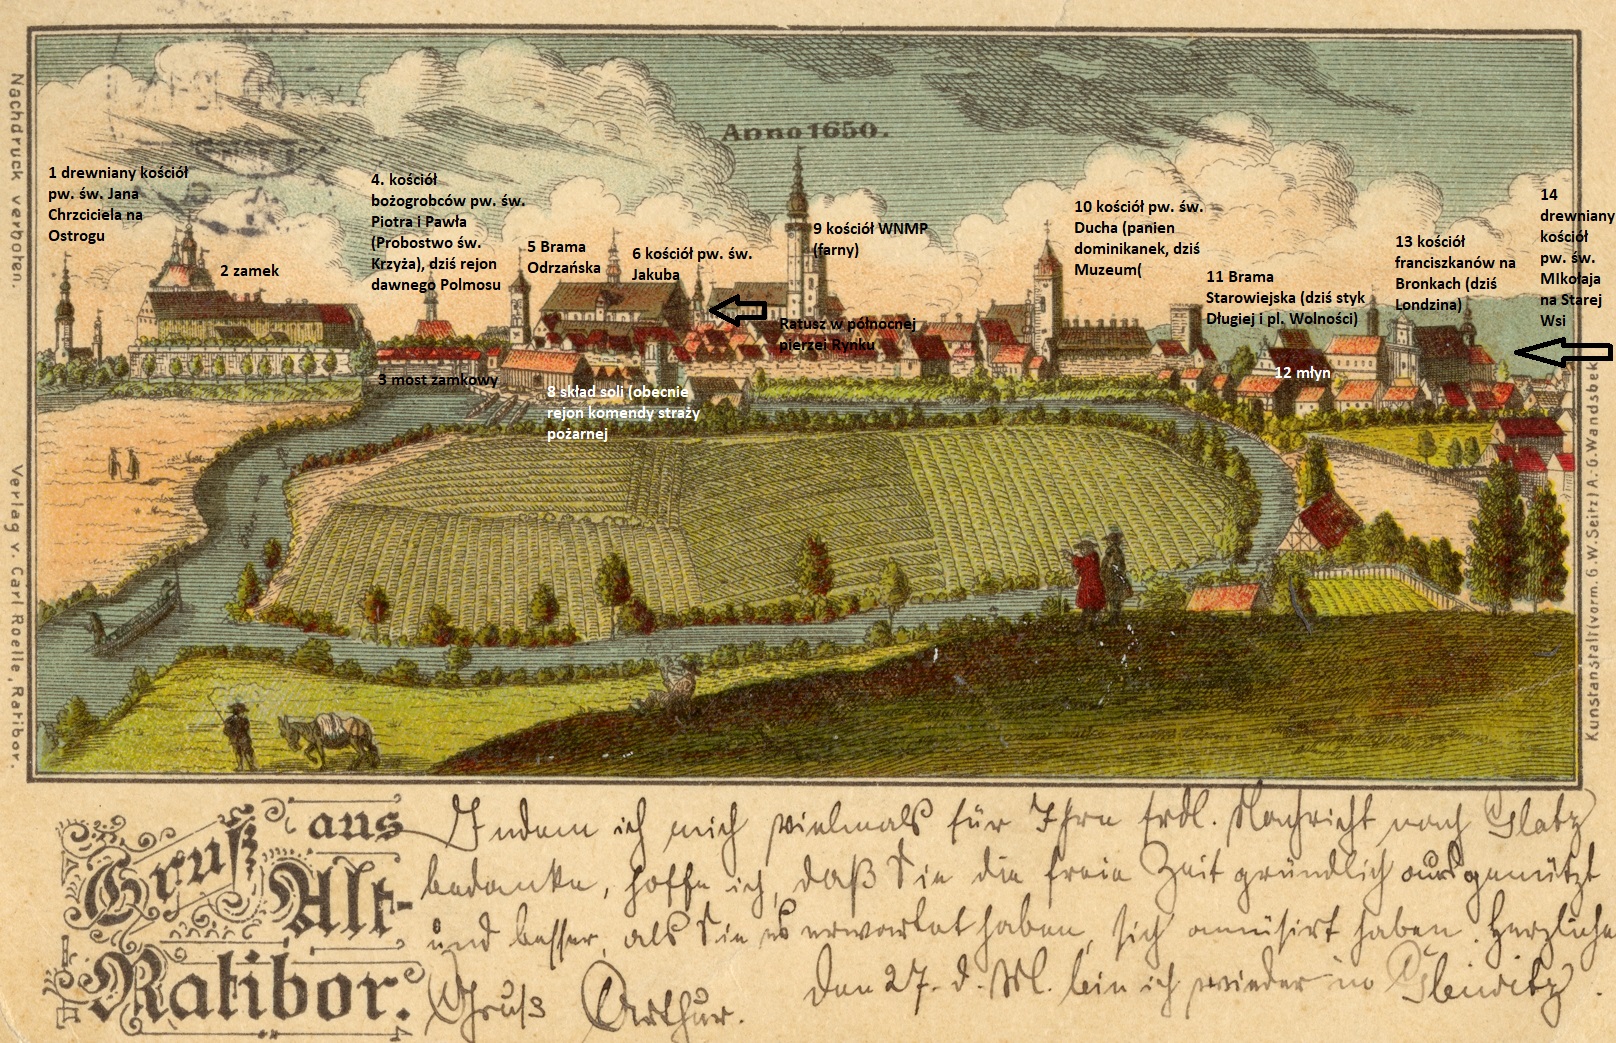 Anno 1650.
1 drewniany kościół
pw. św. Jana
Chrzciciela na
Ostrogu
2 zamek
4. kościół
bożogrobców pw. św.
Piotra i Pawła
(Probostwo św.
Krzyża), dziś rejon
dawnego Polmosu
5 Brama
Odrzańska
6 kościół pw. św.
Jakuba
9 kościół WNMP
(farny)
10 kościół pw. św.
Ducha (panien
dominikanek, dziś
Muzeum(
11 Brama
Starowiejska (dziś styk
Długiej i pl. Wolności)
13 kościół
franciszkanów na
Bronkach (dziś
Londzina)
14
drewniany
kościół
pw. św.
MIkołaja
na Starej
Wsi
Ratusz w północnej
pierzei Rynku
3 most zamkowy
8 skład soli (obecnie
rejon komendy straży
pożarnej
12 młyn
Nachdruck verboten.
Verlag v. Carl Roelle, Ratibor.
Kunstanstalt (vorm. G. W. Seitz) A.-G. Wandsbek
Gruß aus
Alt-
Ratibor.
Indem ich mich vielmals für Ihre frdl. Nachricht nach Glatz
bedanke, hoffe ich, daß Sie die freie Zeit gründlich ausgenützt
und besser, als Sie es erwartet haben, sich amüsirt haben. Herzliche
Gruß Arthur. Den 27. d. M. bin ich wieder in Gleiwitz.